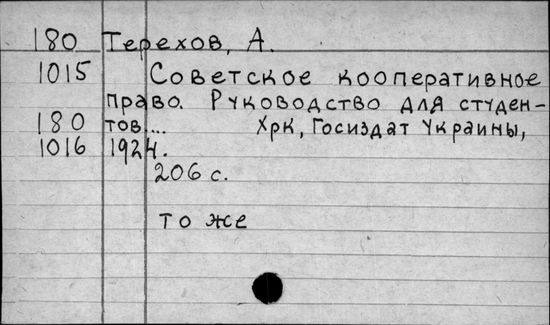 180 Терехов, А.
1015 Советское кооперативное
право. Руководство для студен-
180 тов.... Хрк, Госиздат Украины,
1016 1924.
206 с.
то же